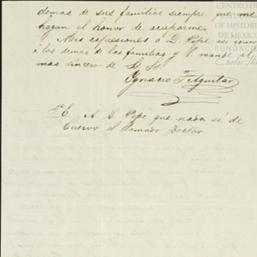 demas de sus familias siempre que me
hagan el honor de ocuparme
Mis espresiones á D. Pepe
á las demas de las familias y V. mande al
mas sincero de S. S.
Ygnacio F. Aguilar
P. E. A D. Pepe que nada sé de
Cuervo el llamado Doctor
CENTRO DE
DE HISTORIA
DE MEXICO
FUNDACIÓN